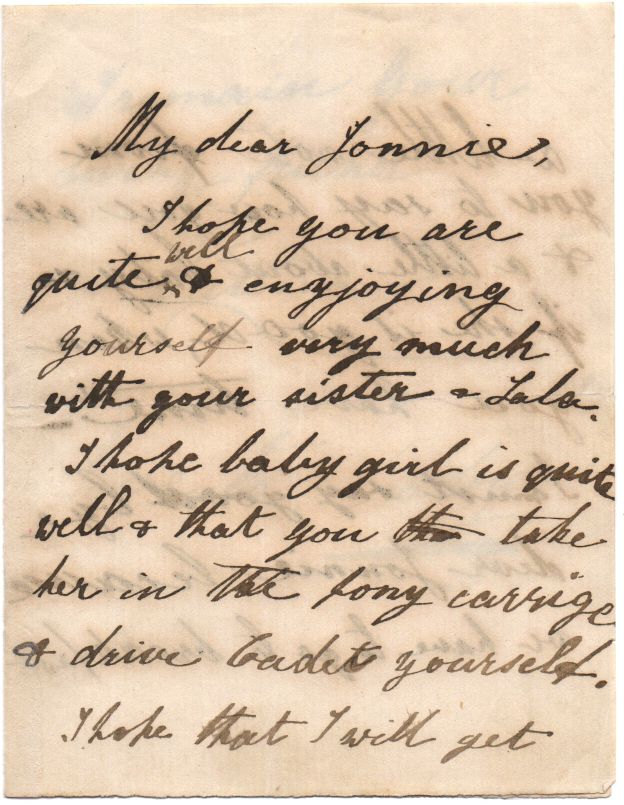 My dear Tonnie,
I hope you are
well
quite & enyjoying
yourself very much
with your sister & Lala.
I hope baby girl is quite
well & that you take
her in the pony carrige
& drive Cadet yourself.
I hope that I will get